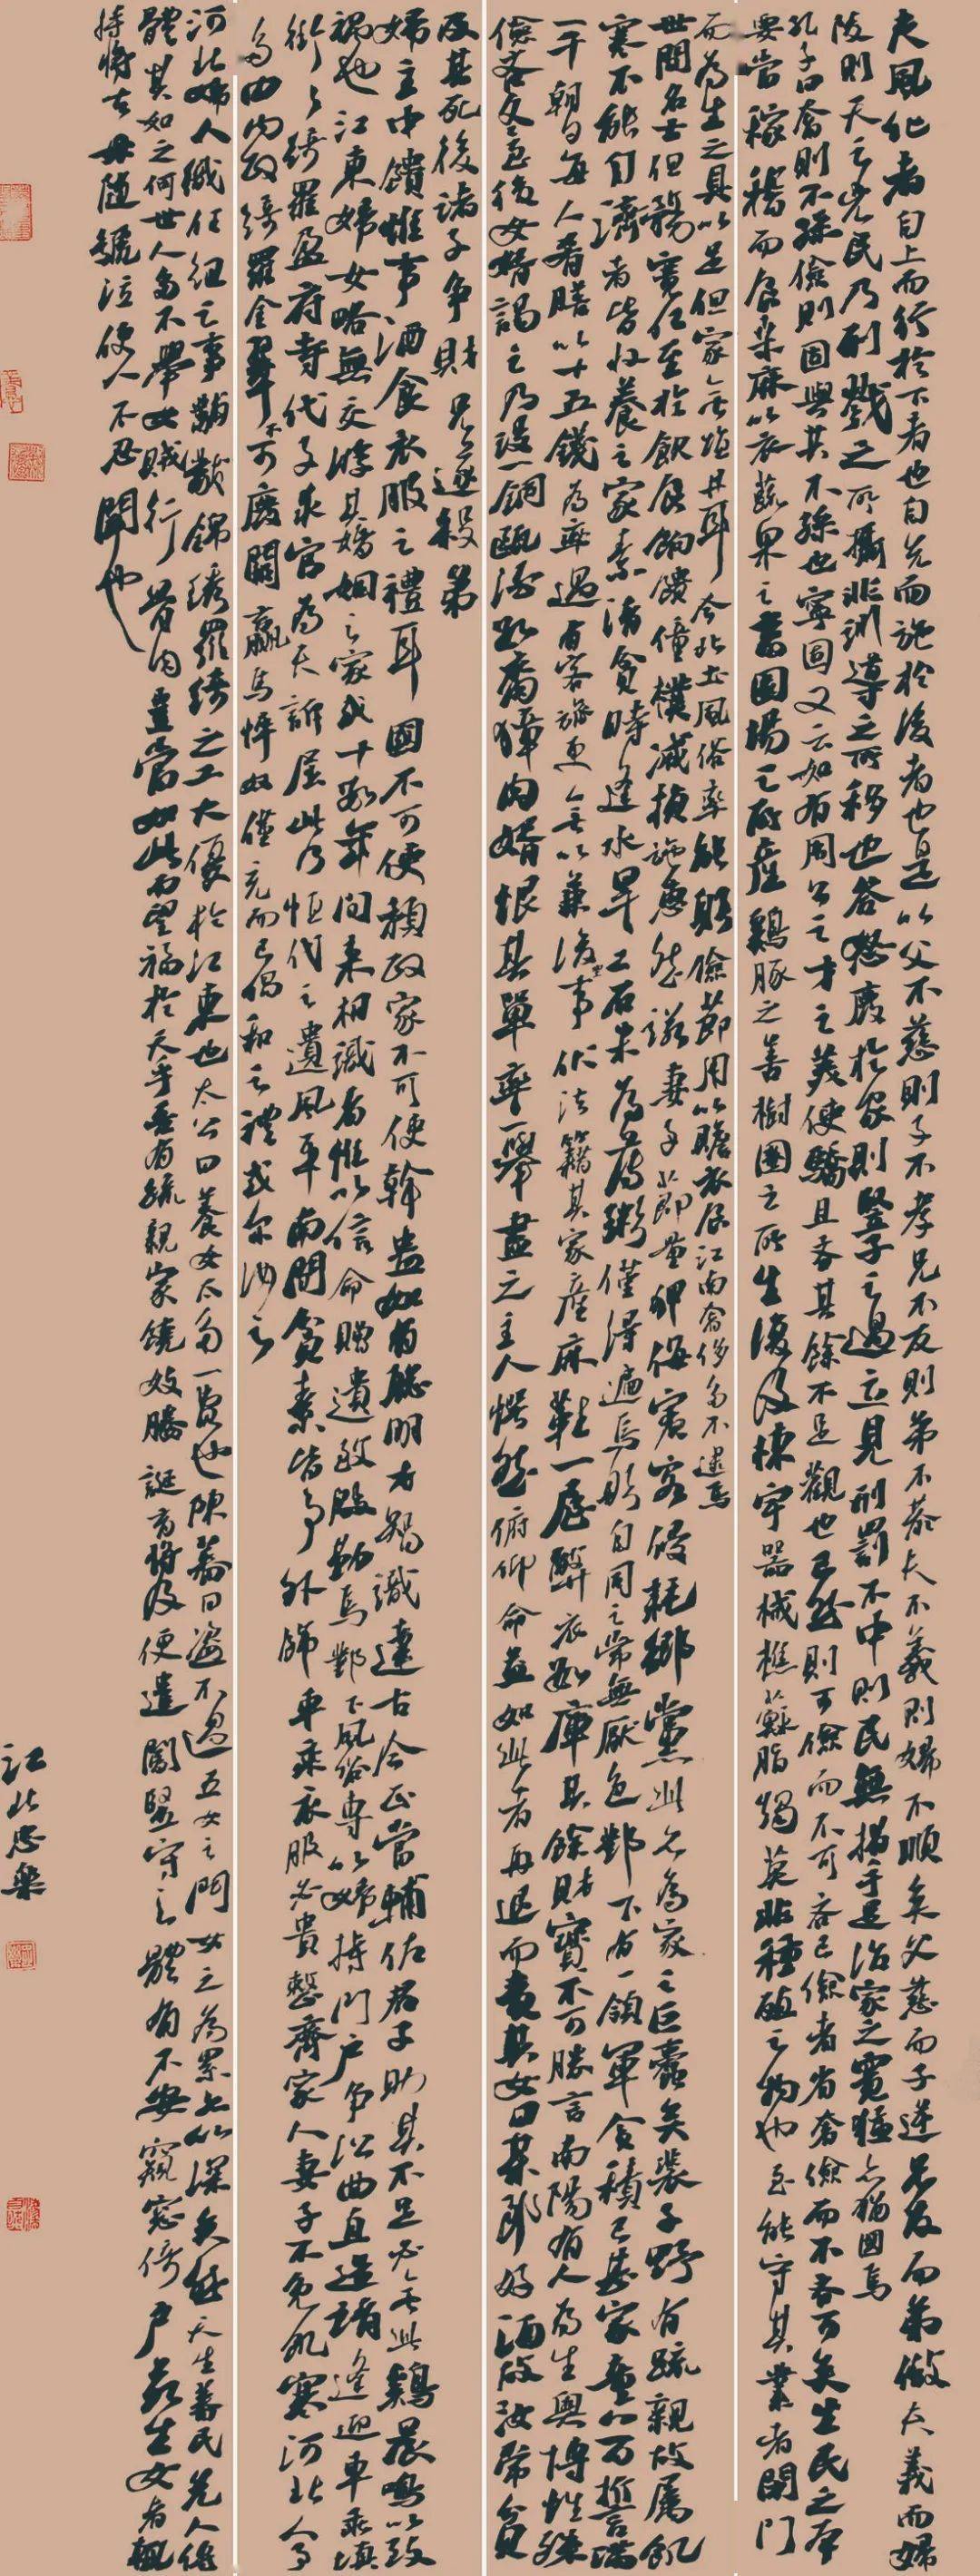 夫風化者自上而行於下者也自先而施於後者也是以父不慈則子不孝兄不友則弟不恭夫不義則婦不順矣父慈而子逆兄友而弟傲夫義而婦
陵則天之凶民乃刑戮之所攝非訓導之所移也笞怒廢於家則豎子之過立見刑罰不中則民無措手足治家之寬猛亦猶國焉
孔子曰奢則不孫儉則固與其不孫也寧固又云如有周公之才之美使驕且吝其餘不足觀也已然則可儉而不可吝已儉者省奢儉而不吝可矣生民之本
要當稼穡而食桑麻以衣蔬果之畜園場之所產雞豚之善樹圈之所生復及棟宇器械樵蘇脂燭莫非種殖之物也至能守其業者閉門
而為生之具以足但家無鹽井耳今北土風俗率能躬儉節用以贍衣食江南奢侈多不逮焉
世間名士但務寬仁至於飲食餉饋僮僕減損施惠然諾妻子節量狎侮賓客侵耗鄉黨此亦為家之巨蠹矣裴子野有疏親故屬飢
寒不能自濟者皆收養之家素清貧時逢水旱二石米為薄粥僅得遍焉躬自同之常無厭色鄴下有一領軍貪積已甚家童八百誓滿
一千朝夕每人肴膳以十五錢為率遇有客旅更無以兼後坐事伏法籍其家產麻鞋一屋弊衣數庫其餘財寶不可勝言南陽有人為生奧博性殊
儉吝冬至後女婿謁之乃設一銅甌酒數臠獐肉婿恨其單率一舉盡之主人愕然俯仰命益如此者再退而責其女曰某郎好酒故汝常貧
及其死後諸子爭財兄遂殺弟
婦主中饋惟事酒食衣服之禮耳國不可使預政家不可使幹蠱如有聰明才智識達古今正當輔佐君子助其不足必無牝雞晨鳴以致
禍也江東婦女略無交遊其婚姻之家或十數年間未相識者惟以信命贈遺致殷勤焉鄴下風俗專以婦持門戶爭訟曲直造請逢迎車乘填
街衢綺羅盈府寺代子求官為夫訴屈此乃恆代之遺風乎南間貧素皆事外飾車乘衣服必貴整齊家人妻子不免飢寒河北人事
多由內政綺羅金翠不可廢闕羸馬悴奴僅充而已倡和之禮或爾汝之
河北婦人織紝組紃之事黼黻錦繡羅綺之工大優於江東也太公曰養女太多一費也陳蕃曰盜不過五女之門女之為累亦以深矣然天生蒸民先人傳
體其如之何世人多不舉女賊行骨肉豈當如此而望福於天乎吾有疏親家饒妓媵誕育將及便遣閽豎守之體有不安窺窗倚戶若生女者輒
持將去母隨號泣使人不忍聞也